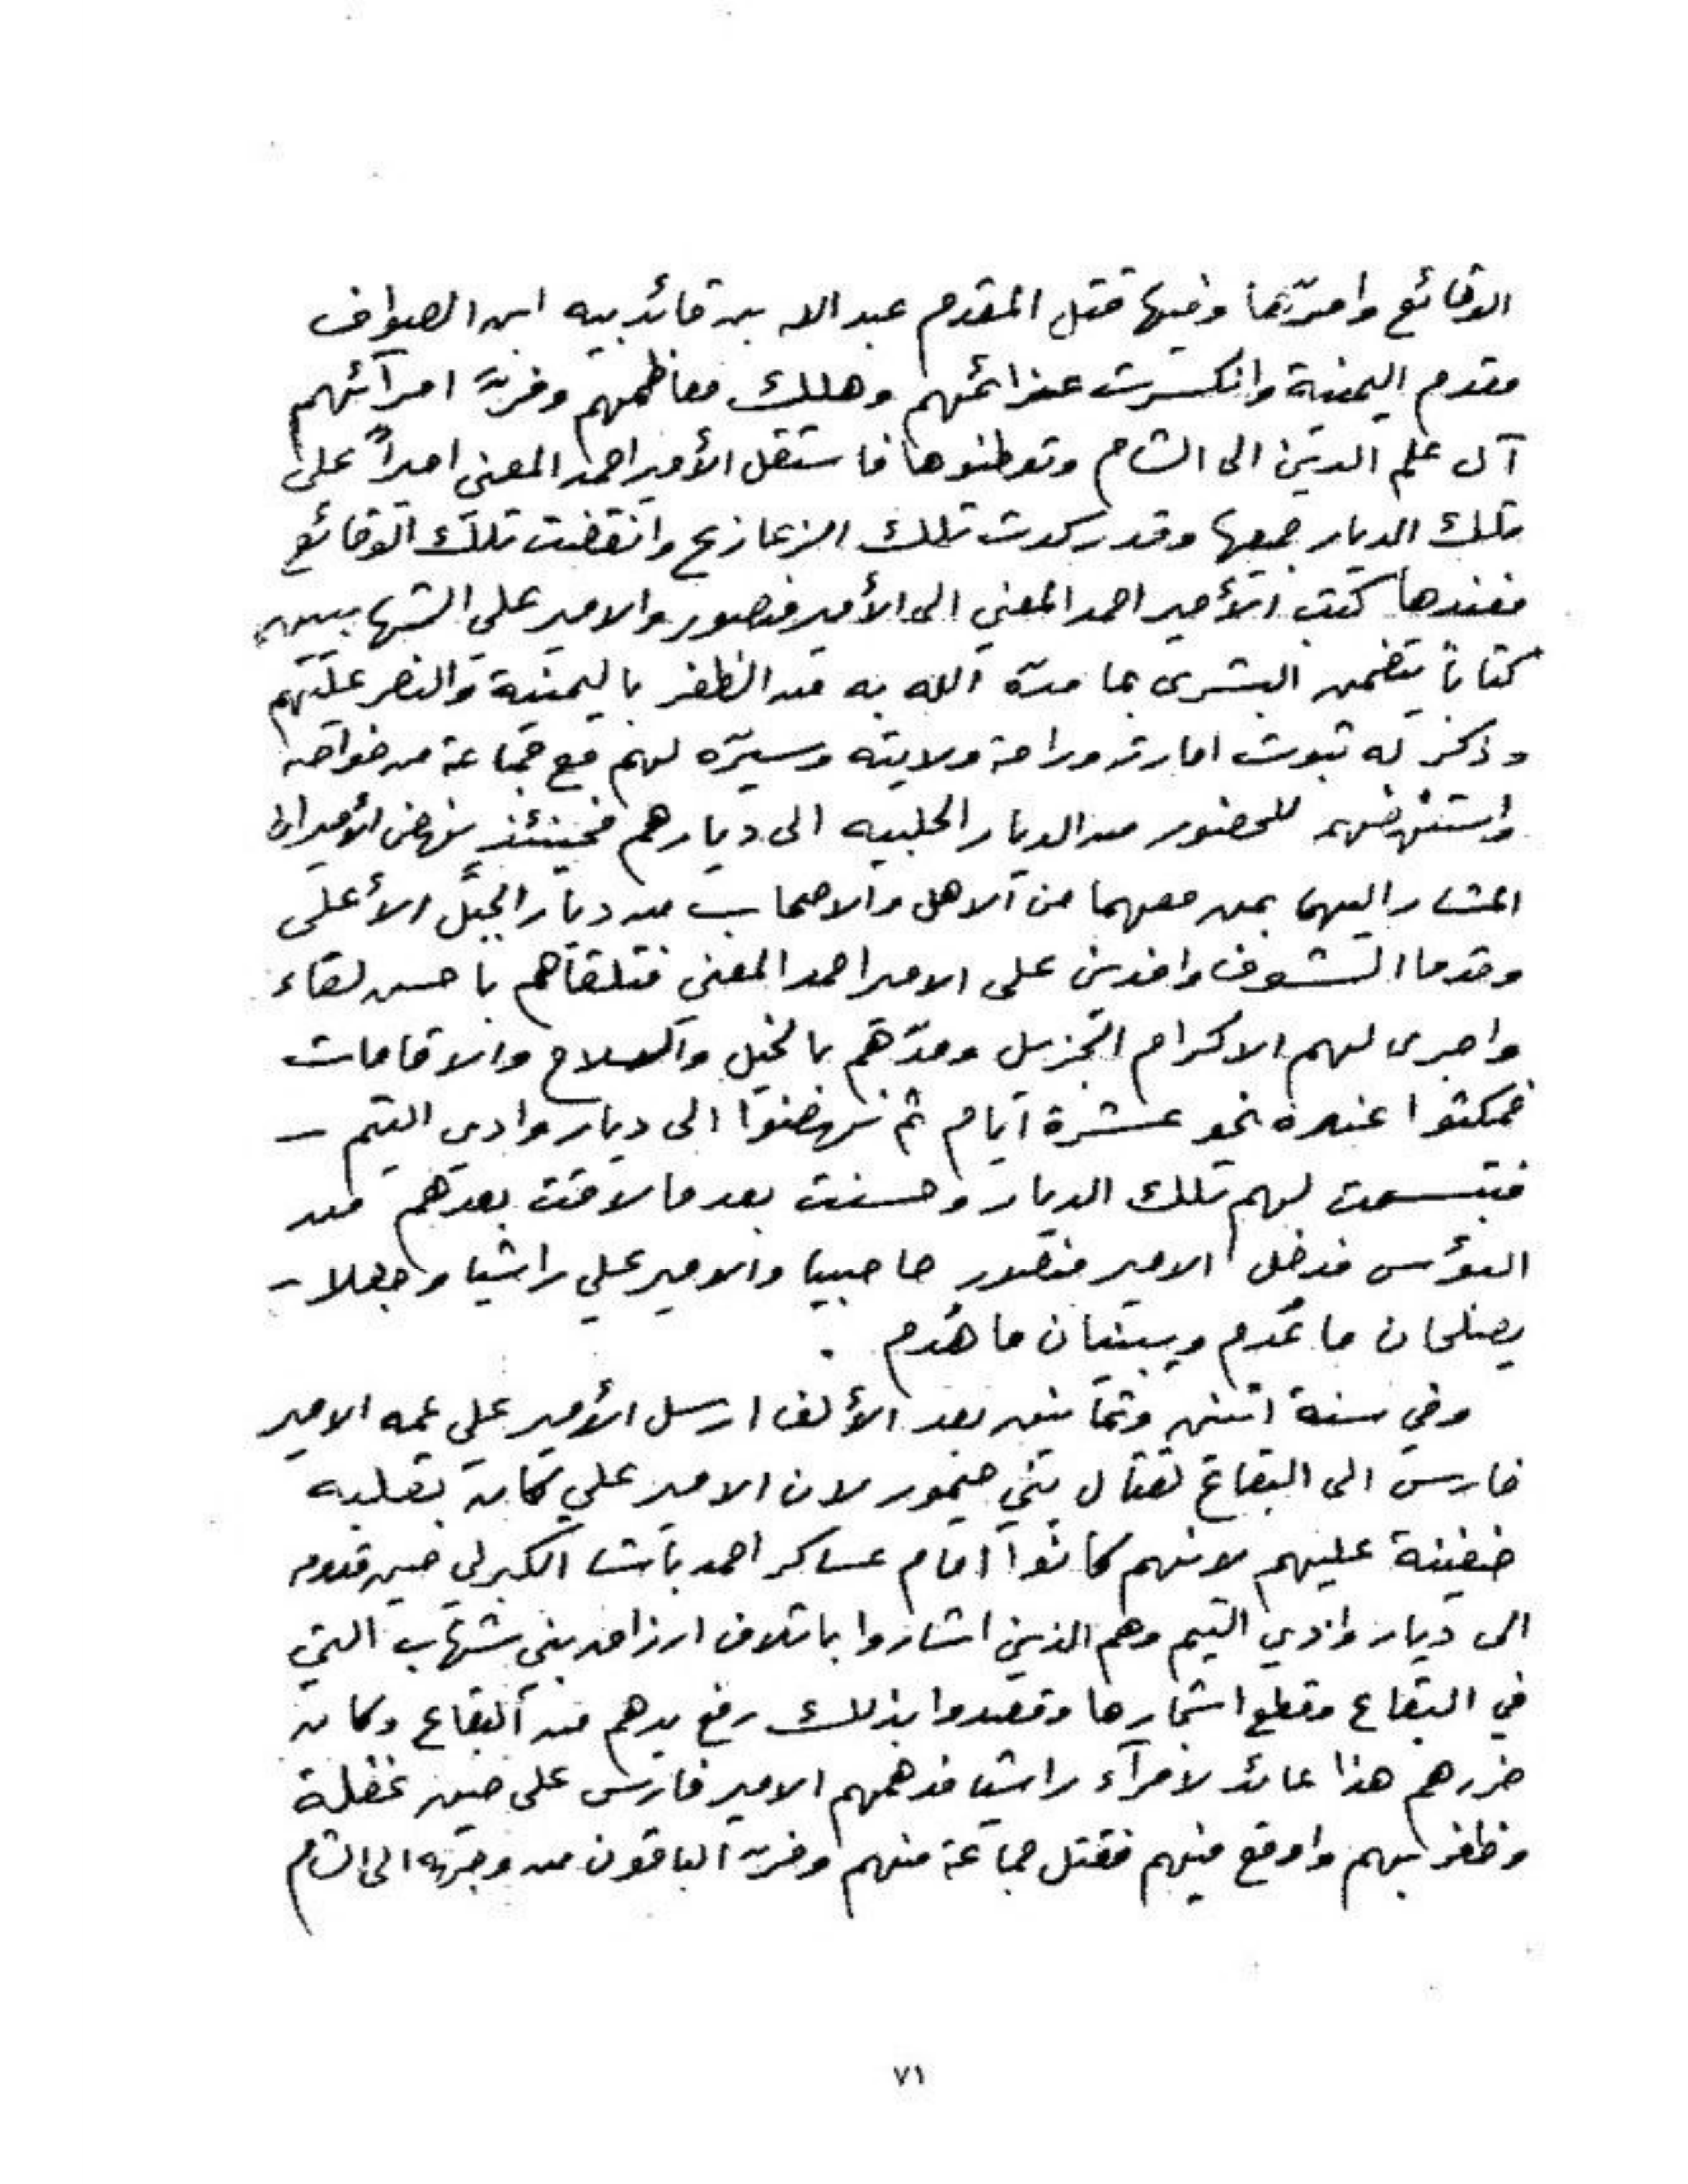 الوقائع وامرّها وفيها قتل المقدم عبد الله بن قائد بيه ابن الصواف
مقدم اليمنية وانكسرت عزائمهم وهلك معاظمهم وفرّ امرآئهم
آل علم الدين الى الشام وتوطنوها فاستقل الأمير احمد المعني اميراً على
تلك الديار جميعها وقد ركدت تلك الزعازع وانقضت تلك الوقائع
فعندها كتب الأمير احمد المعني الى الأمير منصور والامير علي الشهابيين
كتاباً يتضمن البشرى بما مدّه الله به من الظفر باليمنية والنصر عليهم
وذكر له ثبوت امارته وراحة ولايته وسيّره لهم مع جماعة من خواصه
واستنهضهم للحضور من الديار الحلبيه الى ديارهم فحينئذٍ نهض الأميران
المشار اليهما بمن معهما من الاهل والاصحاب من ديار الجبل الأعلى
وقدما الشوف وافدين على الامير احمد المعني فتلقاهم باحسن لقاء
واجرى لهم الاكرام الجزيل ومدّهم بالخيل والسلاح والاقامات
فمكثوا عنده نحو عشرة ايام ثم نهضوا الى ديار وادي التيم –
فتبسمت لهم تلك الديار وحسنت بعد ما لاقت بعدهم من
البؤس فدخل الامير منصور حاصبيا والامير علي راشيا وجعلا –
يصلحان ما عُدم ويبنيان ما هُدم .
وفي سنة اثنين وثمانين بعد الألف ارسل الأمير علي عمه الامير
فارس الى البقاع لقتال بني حيمور لان الامير علي كان بقلبه
ضغينة عليهم لانهم كانوا امام عساكر احمد باشا الكبرلي حين قدومه
الى ديار وادي التيم وهم الذين اشاروا باتلاف ارزاق بني شهاب التي
في البقاع وقطع اشجارها وقصدوا بذلك رفع يدهم من البقاع وكان
ضررهم هذا عائد لامرآء راشيا فدهمهم الامير فارس على حين غفلة
وظفر بهم واوقع فيهم فقتل جماعة منهم وفرّ الباقون من وجهه الى الشام
٧١